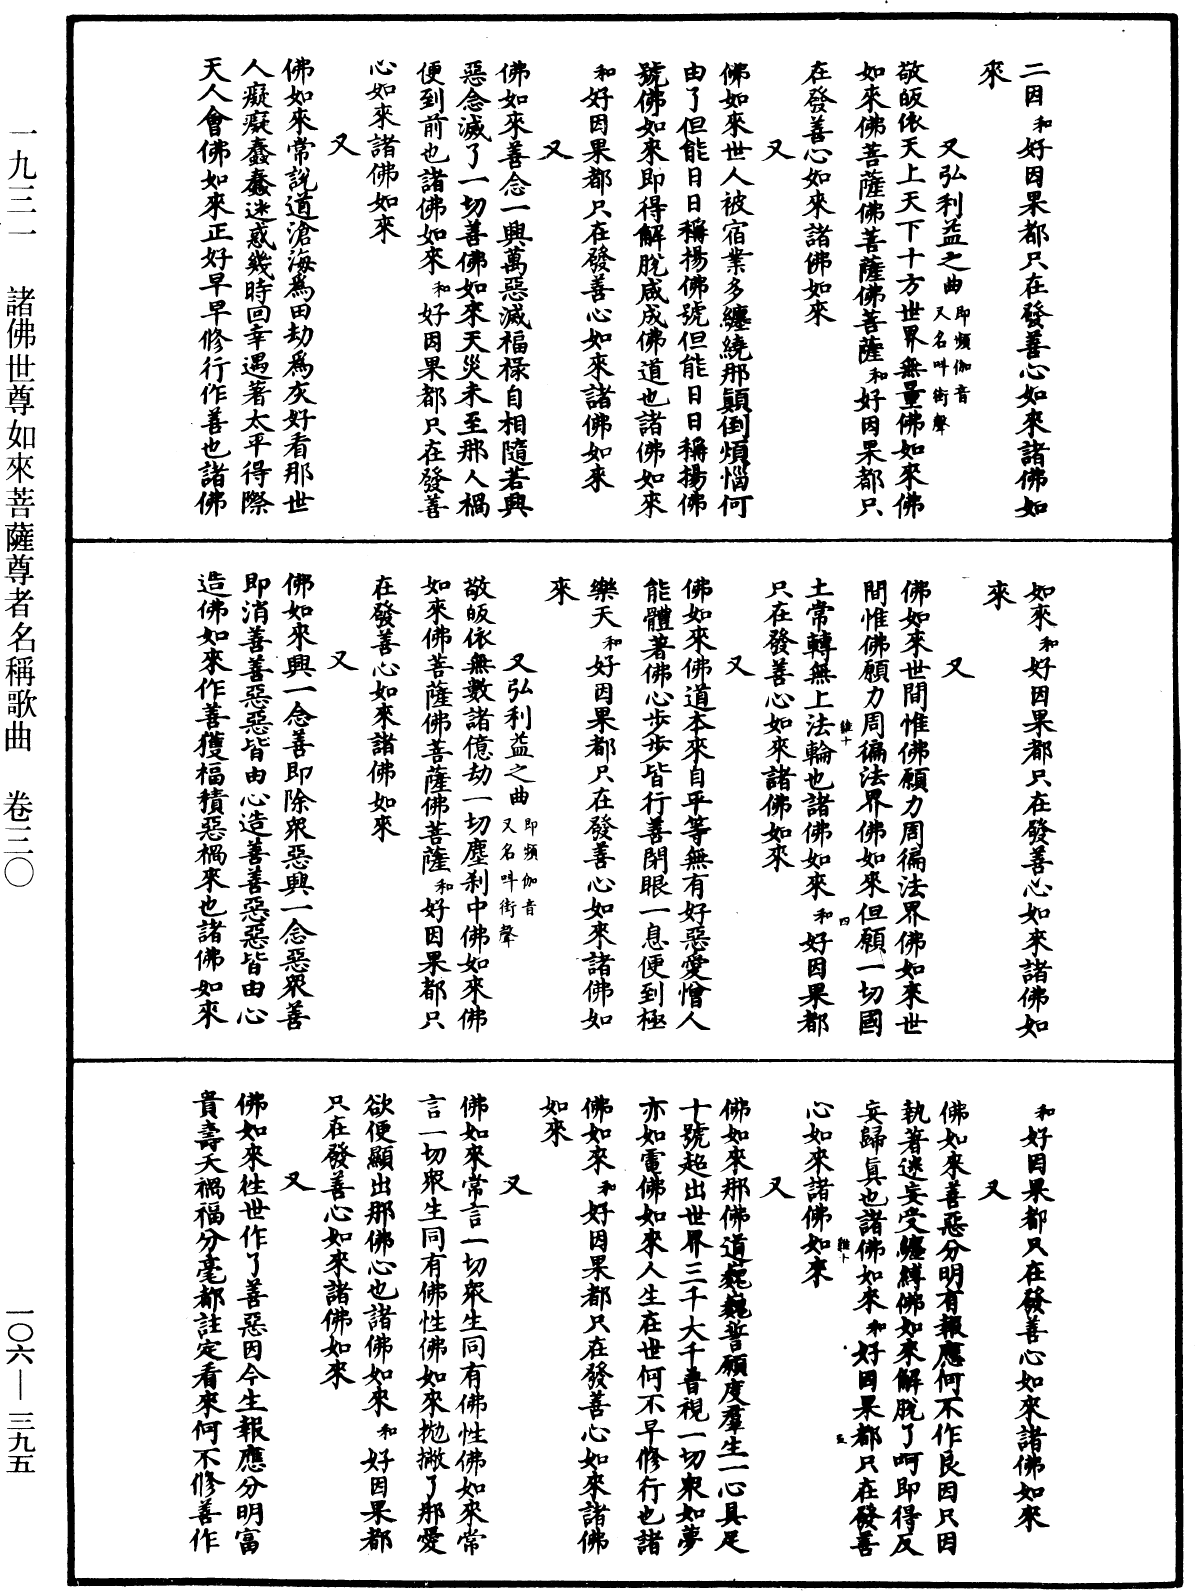 二因和好因果都只在發善心如來諸佛如
來
又弘利益之曲即頻伽音又名叫街聲
敬皈依天上天下十方世界無量佛如來佛
如來佛菩薩佛菩薩佛菩薩和好因果都只
在發善心如來諸佛如來
又
佛如來世人被宿業多纏繞那顛倒煩惱何
由了但能日日稱揚佛號但能日日稱揚佛
號佛如來即得解脫咸成佛道也諸佛如來
和好因果都只在發善心如來諸佛如來
又
佛如來善念一興萬惡滅福祿自相隨若興
惡念滅了一切善佛如來天災未至那人禍
便到前也諸佛如來和好因果都只在發善
心如來諸佛如來
又
佛如來常說道滄海為田劫為灰好看那世
人癡癡蠢蠢迷惑幾時回幸遇著太平得際
天人會佛如來正好早早修行作善也諸佛
如來和好因果都只在發善心如來諸佛如
來
又
佛如來世間惟佛願力周徧法界佛如來世
間惟佛願力周徧法界佛如來但願一切國
土常轉無上法輪也諸佛如來和好因果都
只在發善心如來諸佛如來
又
佛如來佛道本來自平等無有好惡愛憎人
能體著佛心步步皆行善閉眼一息便到極
樂天和好因果都只在發善心如來諸佛如
來
又弘利益之曲即頻伽音又名叫街聲
敬皈依無數諸億劫一切塵剎中佛如來佛
如來佛菩薩佛菩薩佛菩薩和好因果都只
在發善心如來諸佛如來
又
佛如來興一念善即除眾惡興一念惡眾善
即消善善惡惡皆由心造善善惡惡皆由心
造佛如來作善獲福積惡禍來也諸佛如來
和好因果都只在發善心如來諸佛如來
又
佛如來善惡分明有報應何不作良因只因
執著迷妄受纏縛佛如來解脫了呵即得反
妄歸真也諸佛如來和好因果都只在發善
心如來諸佛如來
又
佛如來那佛道巍巍誓願度羣生一心具足
十號超出世界三千大千普視一切眾如夢
亦如電佛如來人生在世何不早修行也諸
佛如來和好因果都只在發善心如來諸佛
如來
又
佛如來常言一切眾生同有佛性佛如來常
言一切眾生同有佛性佛如來拋撇了那愛
欲便顯出那佛心也諸佛如來和好因果都
只在發善心如來諸佛如來
又
佛如來徃世作了善惡因今生報應分明富
貴壽夭禍福分毫都註定看來何不修善作
一九三一　諸佛世尊如來菩薩尊者名稱歌曲　卷三〇
一〇六—三九五